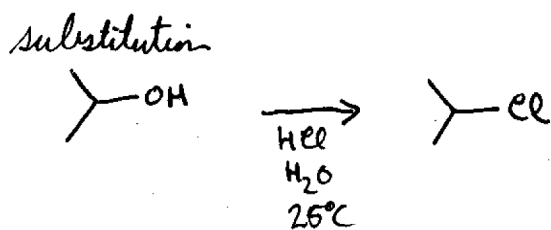 substitution
OH
Cl
HCl
H₂O
25°C